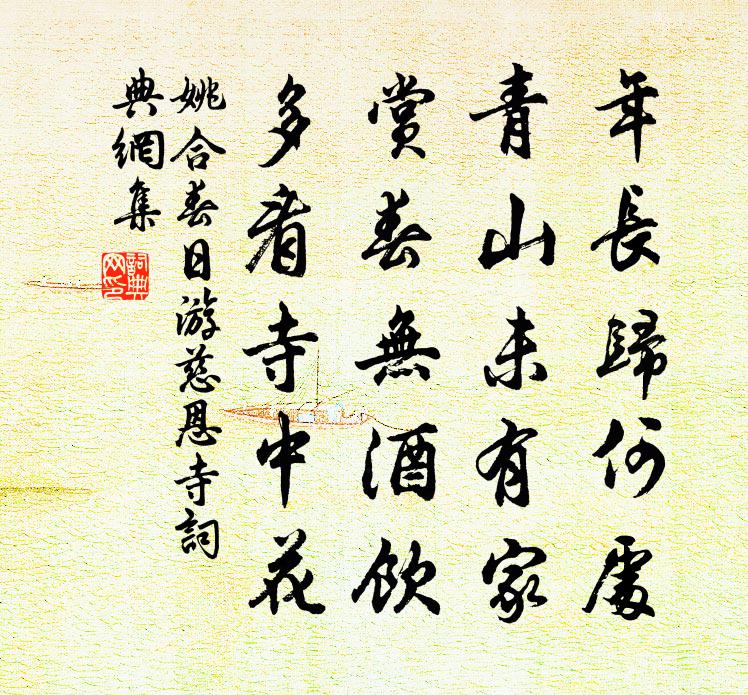 年長歸何處
青山未有家
賞春無酒飲
多看寺中花
姚合春日游慈恩寺詞
典網集
詞典网印